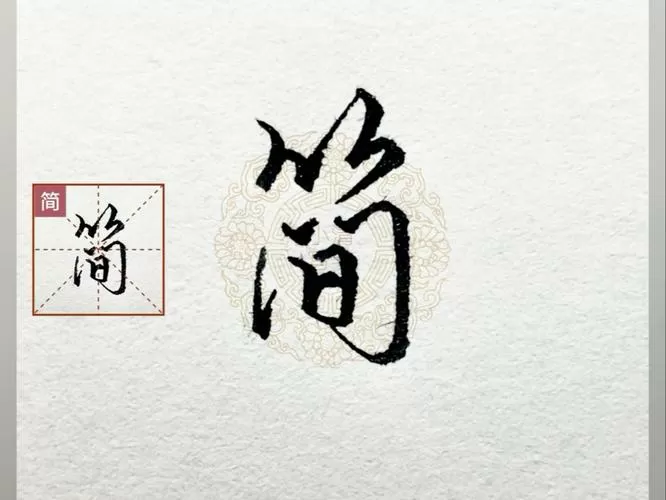 简
简
简